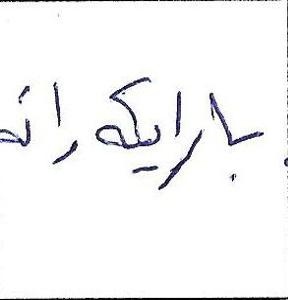 بارایکه راته